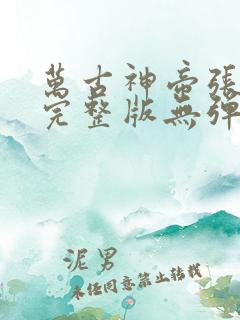 萬古神帝張
完整版無彈
泥男
未任同意禁止转载